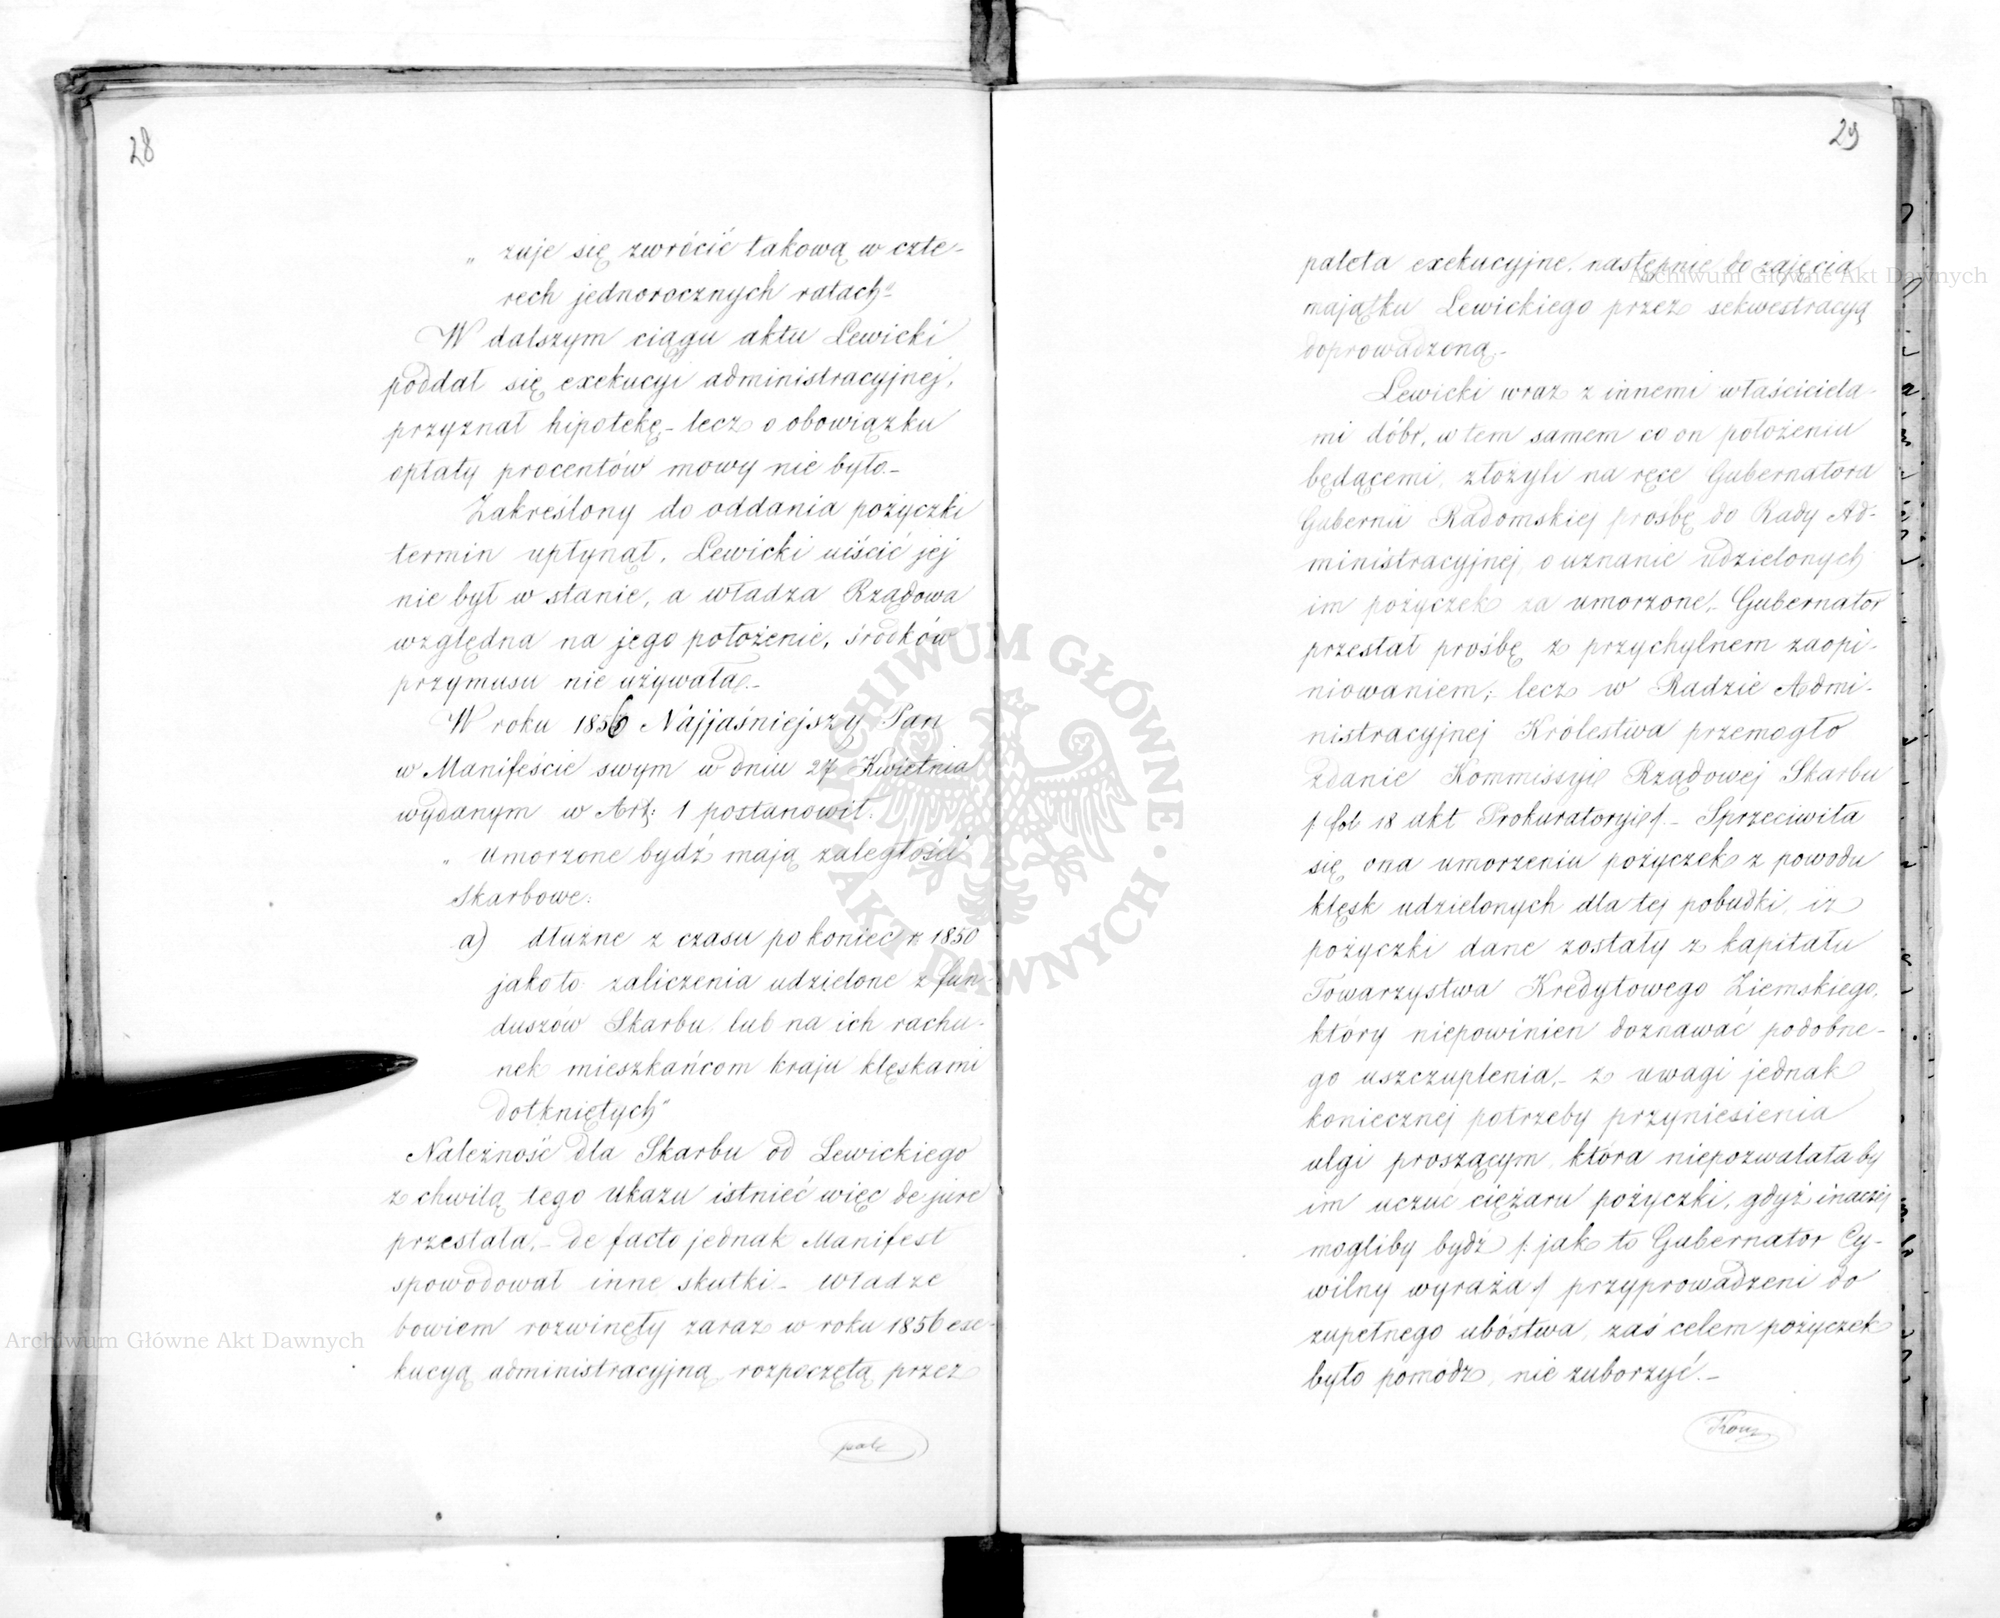 28
„ zuje się zwrócić takową w czte-
rech jednorocznych ratach"
W dalszym ciągu aktu Lewicki
poddał się exekucyi administracyjnej,
przyznał hipotekę - lecz o obowiązku
opłaty procentów mowy nie było. -
Zakreślony do oddania pożyczki
termin upłynął, Lewicki uiścić jej
nie był w stanie, a władza Rządowa
względna na jego położenie, środków
przymusu nie używała. -
W roku 1856 Najjaśniejszy Pan
w Manifeście swym w dniu 27 Kwietnia
wydanym w Art: 1 postanowił:
„ umorzone bydź mają zaległości
Skarbowe:
a) dłużne z czasu po koniec r. 1850
jako to zaliczenia udzielone z fun-
duszów Skarbu lub na ich rachu-
nek mieszkańcom kraju klęskami
dotkniętych"
Należność dla Skarbu od Lewickiego
z chwilą tego ukazu istnieć więc de jure
przestała, - de facto jednak Manifest
spowodował inne skutki - władze
bowiem rozwinęły zaraz w roku 1856 exe-
kucyą administracyjną, rozpoczętą przez
pale
29
paleta exekucyjne, następnie do zajęcia
majątku Lewickiego przez sekwestracyą
doprowadzoną. -
Lewicki wraz z innemi właściciela-
mi dóbr, w tem samem co on położeniu
będącemi, złożyli na ręce Gubernatora
Gubernii Radomskiej prośbę do Rady Ad-
ministracyjnej, o uznanie udzielonych
im pożyczek za umorzone. - Gubernator
przesłał prośbę z przychylnem zaopi-
niowaniem; lecz w Radzie Admi-
nistracyjnej Królestwa przemogło
zdanie Kommissyi Rządowej Skarbu
/: fol 18 akt Prokuratoryi :/. - Sprzeciwiła
się ona umorzeniu pożyczek z powodu
klęsk udzielonych dla tej pobudki, iż
pożyczki dane zostały z kapitału
Towarzystwa Kredytowego Ziemskiego,
który niepowinien doznawać podobne-
go uszczuplenia, - z uwagi jednak
koniecznej potrzeby przyniesienia
ulgi proszącym, która niepozwalałaby
im uczuć ciężaru pożyczki, gdyż inaczej
mogliby bydź /: jak to Gubernator Cy-
wilny wyraża :/ przyprowadzeni do
zupełnego ubóstwa, zaś celem pożyczek
było pomódz, nie zuborzyć. -
ARCHIWUM GŁÓWNE AKT DAWNYCH
Archiwum Główne Akt Dawnych
Archiwum Główne Akt Dawnych